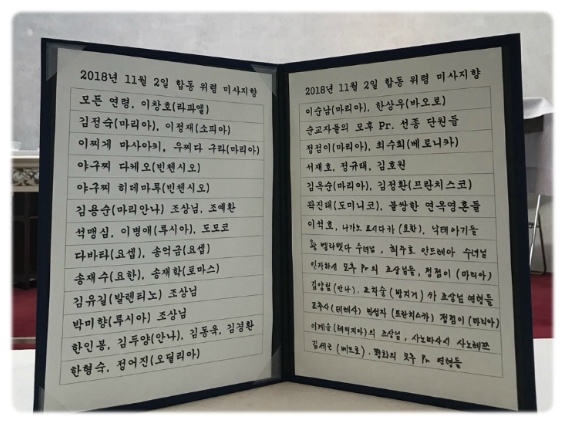 2018년 11월 2일 합동 위령 미사지향
모든 연령, 이창호(라파엘)
김정숙(마리아), 이정재(소피아)
이찌게 마사아키, 우찌다 구라(마리아)
야구찌 다케오(빈첸시오)
야구찌 히데마루(빈첸시오)
김용순(마리안나) 조상님, 조예환
석맹심, 이병애(루시아), 도모코
다바타(요셉), 송억금(요셉)
송재수(요한), 송재학(토마스)
김유길(발렌티노) 조상님
박미향(루시아) 조상님
한인봉, 김두양(안나), 김동욱, 김경환
한형숙, 정어진(오딜리아)
2018년 11월 2일 합동 위령 미사지향
이순남(마리아), 한상우(바오로)
순교자들의 모후 Pr. 선종 단원들
정점이(마리아), 최수희(베로니카)
서재호, 정규태, 김호원
김옥순(마리아), 김정환(프란치스코)
곽진태(도미니코), 불쌍한 연옥영혼들
이석호, 나가노 요시다카 (요한), 낙태아기들
수녀님, 최주호 안드레아 수녀님
인자하신 모후 Pr의 조상님들, 정점이 (마리아)
(안나), 가 조상님 영혼들
(데레사) (프란치스카) 정점이 (마리아)
의 조상님,
(베드로), 평화의 모후 Pr 영혼들